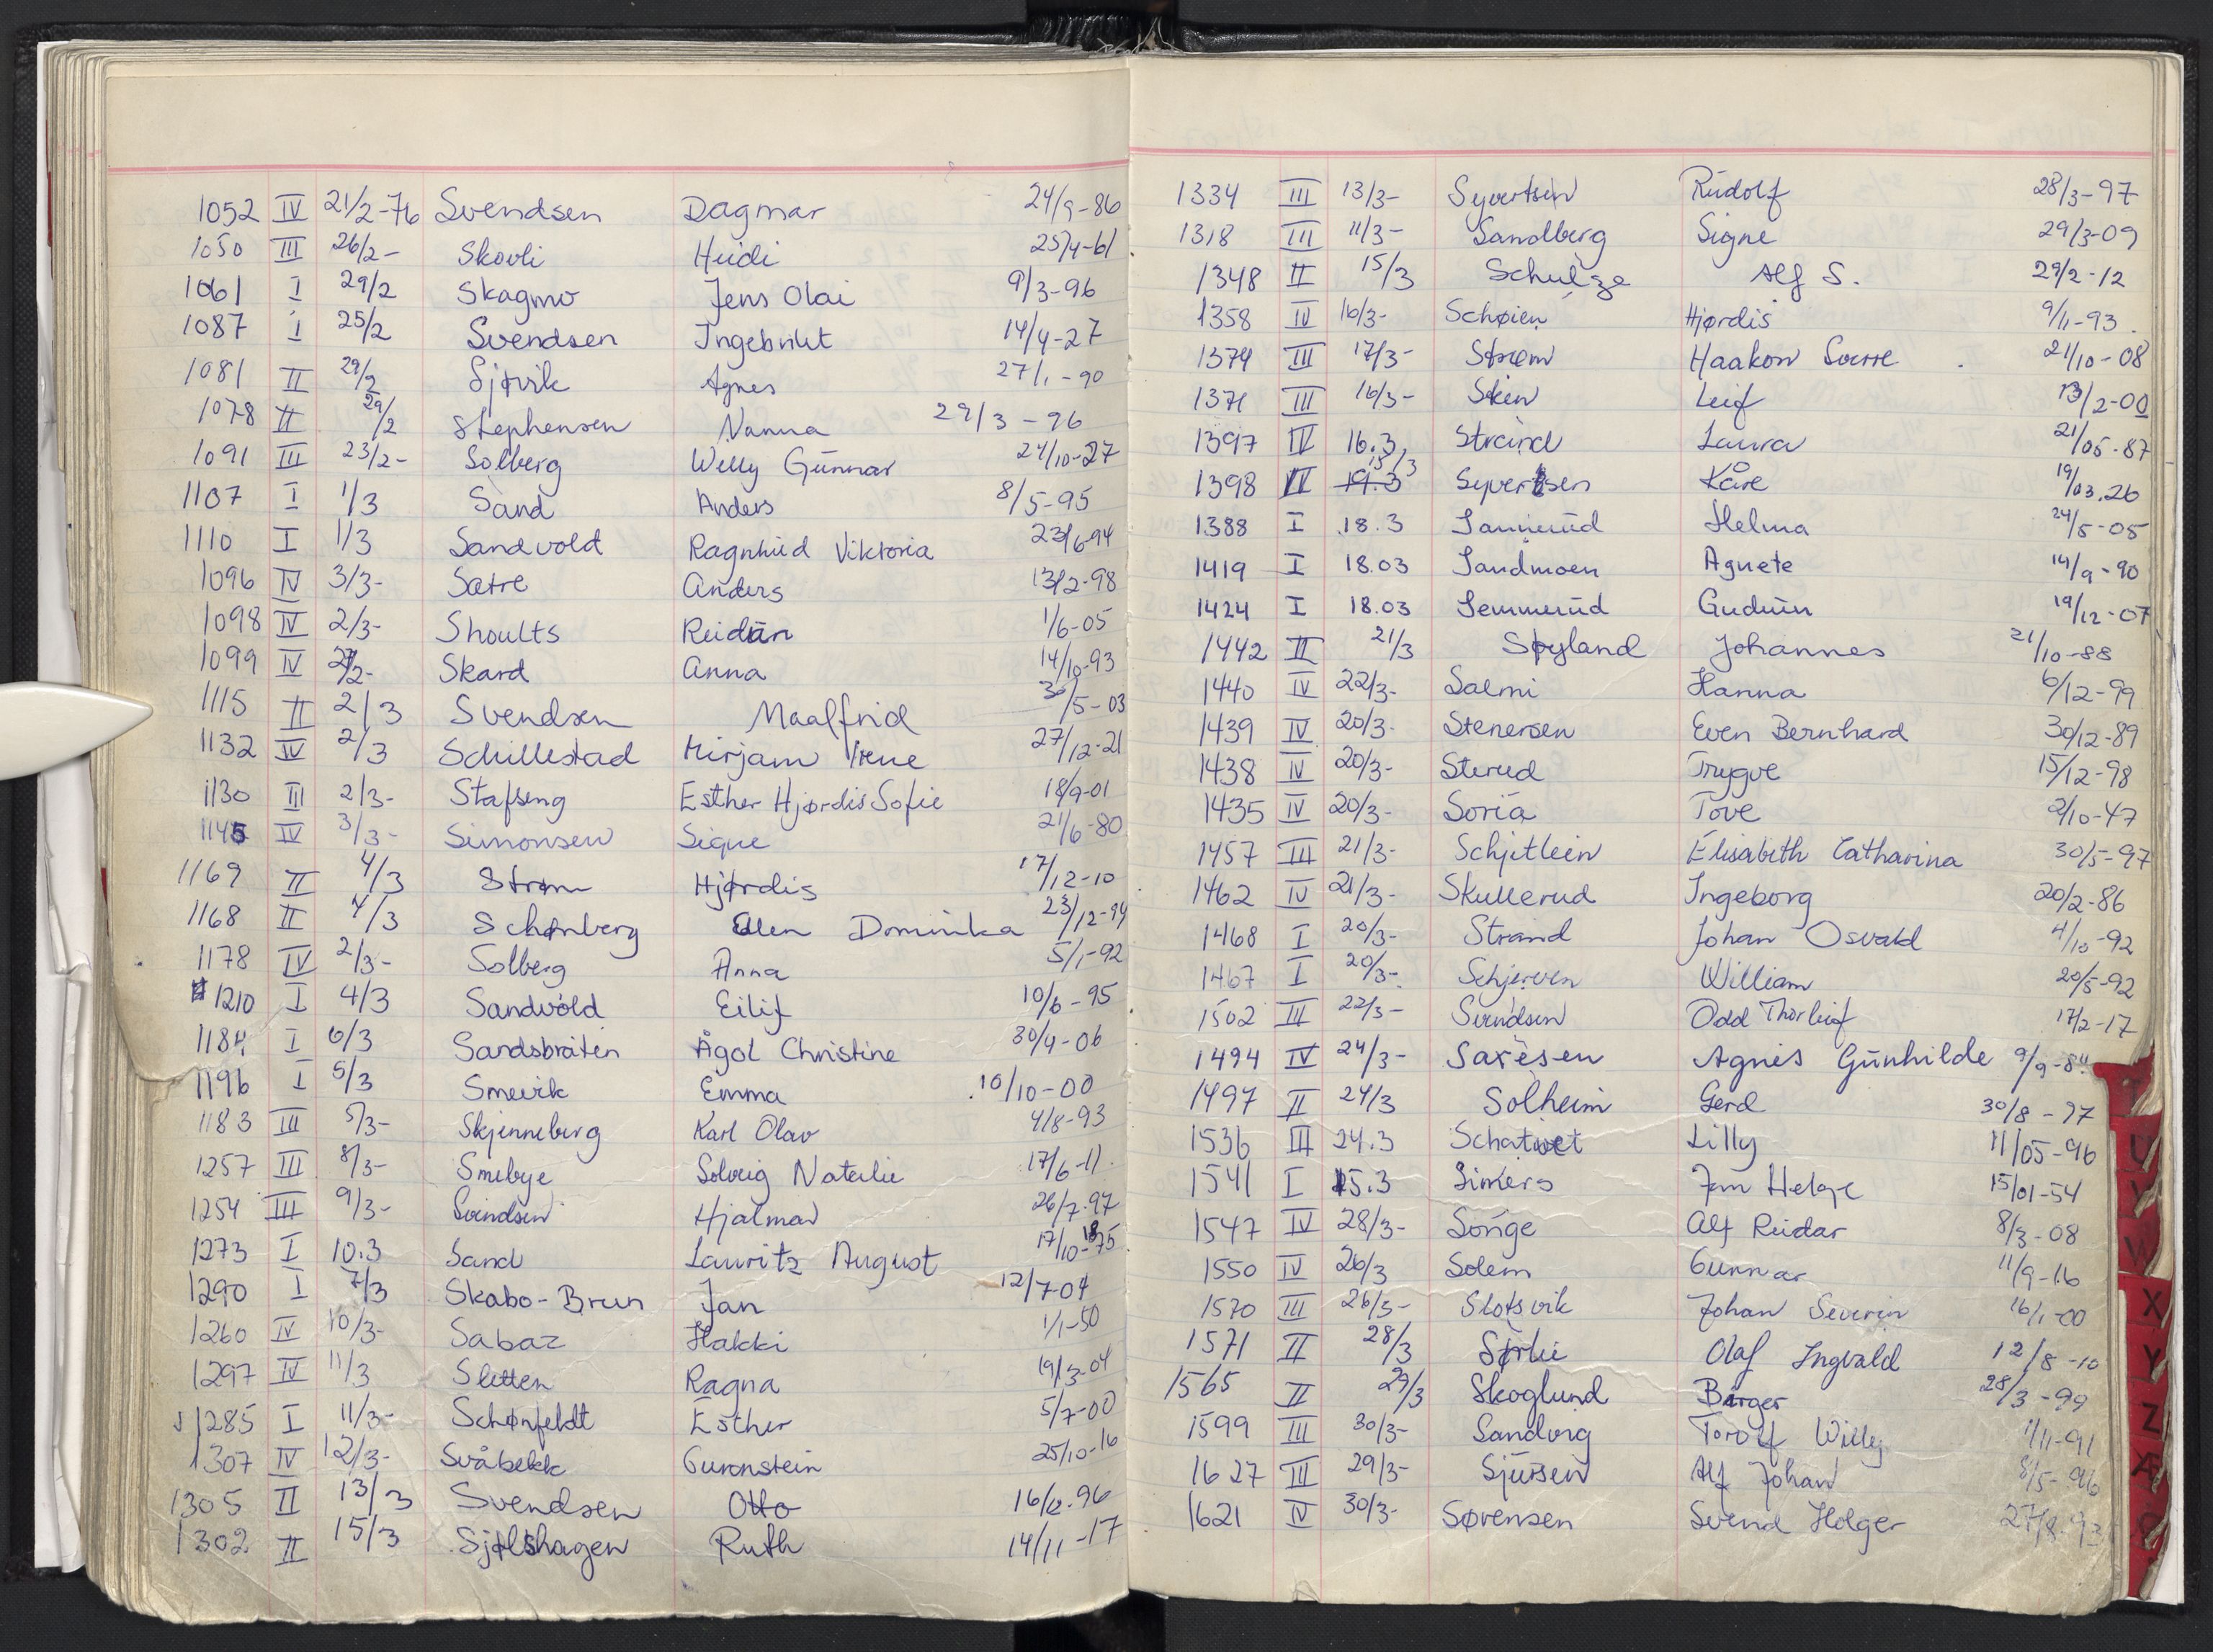 1052 IV 21/2-76 Svendsen Dagmar 24/9-86
1050 III 26/2- Skovli Heidi 25/4-61
1061 I 29/2 Skagmo Jens Olai 9/3-96
1087 I 25/2 Svendsen Ingebrikt 14/4-27
1081 II 29/2 Sjøvik Agnes 27/1-90
1078 II 29/2 Stephensen Nanna 29/3-96
1091 III 23/2- Solberg Willy Gunnar 24/10-27
1107 I 1/3 Sand Anders 8/5-95
1110 I 1/3 Sandvold Ragnhild Viktoria 23/6-94
1096 IV 3/3- Sætre Anders 13/2-98
1098 IV 2/3- Shoults Reidun 1/6-05
1099 IV Skard Anna 14/10-93
1115 II 2/3 Svendsen Maalfrid 30/5-03
1132 IV 2/3 Schillestad Mirjam Irene 27/12-21
1130 III 2/3- Stafseng Esther Hjørdis Sofie 18/9-01
1145 IV 3/3- Simonsen Signe 21/6-80
1169 II 4/3 Strøm Hjørdis 17/12-10
1168 II 4/3 Schønberg Ellen Dominika 23/12-94
1178 IV 2/3- Solberg Anna 5/1-92
1210 I 4/3 Sandvold Eilif 10/6-95
1184 I 6/3 Sandsbråten Ågot Christine 30/4-06
1196 I 5/3 Smevik Emma 10/10-00
1183 III 5/3- Skjenneberg Karl Olav 4/8-93
1257 III 8/3- Smebye Solveig Natalie 17/6-11
1254 III 9/3- Svendsen Hjalmar 26/7-97
1273 I 10.3 Sand Lauritz August 17/10-1875
1290 I 7/3 Skabo-Brun Jan 12/7-04
1260 IV 10/3- Sabaz Hakki 1/1-50
1297 IV 11/3 Sletten Ragna 19/3-04
1285 I 11/3- Schønfeldt Esther 5/7-00
1307 IV 12/3- Svåbekk Gunnstein 25/10-16
1305 II 13/3 Svendsen Otto 16/12-96
1302 II 15/3 Sjølshagen Ruth 14/11-17
1334 III 13/3- Syvertsen Rudolf 28/3-97
1318 III 11/3- Sandberg Signe 29/3-09
1348 II 15/3 Schulze Alf S. 29/2-12
1358 IV 16/3- Schøien Hjørdis 9/11-93
1374 III 17/3- Strøm Haakon Sverre 21/10-08
1371 III 16/3- Skin Leif 13/2-00
1397 IV 16.3, Strand Laura 21/05-87
1398 IV 19.3 15/3 Syvertsen Kåre 19/03.26
1388 I 18.3 Sannerud Helma 24/5-05
1419 I 18.03 Sandmoen Agnete 14/9-90
1424 I 18.03 Semmerud Gudrun 19/12-07
1442 II 21/3 Søyland Johannes 21/10-88
1440 IV 22/3- Salmi Hanna 6/12-99
1439 IV 20/3- Stenersen Even Bernhard 30/12-89
1438 IV 20/3- Sterud Trygve 15/12-98
1435 IV 20/3- Soria Tove 2/10-47
1457 III 21/3- Schjetlein Elisabeth Catharina 30/5-97
1462 IV 21/3- Skullerud Ingeborg 20/2-86
1468 I 20/3- Strand Johan Osvald 4/10-92
1467 I 20/3- Schjerven William 20/5-92
1502 III 22/3- Svendsen Odd Thorleif 17/2-17
1494 IV 24/3- Saxesen Agnes Gunhilde
1497 II 24/3 Solheim Gerd 30/8-97
1536 III 24.3 Lilly 11/05-96
1541 I 25.3 Simers Jan Helge 15/01-54
1547 IV 28/3- Songe Alf Reidar 8/3-08
1550 IV 26/3 Solem Gunnar 11/9-16
1570 III 26/3- Slotsvik Johan Severin 16/1-00
1571 II 28/3 Sørlie Olaf Ingvald 12/8-10
1565 II 29/3 Skoglund Birger 28/3-99
1599 III 30/3- Sandvig Torolf Willy 1/11-91
1627 III 29/3- Sjursen Alf Johan 8/5-96
1621 IV 30/3- Sørensen Svend Holger 27/8-93
U
V
W
X
Y
Z
Æ